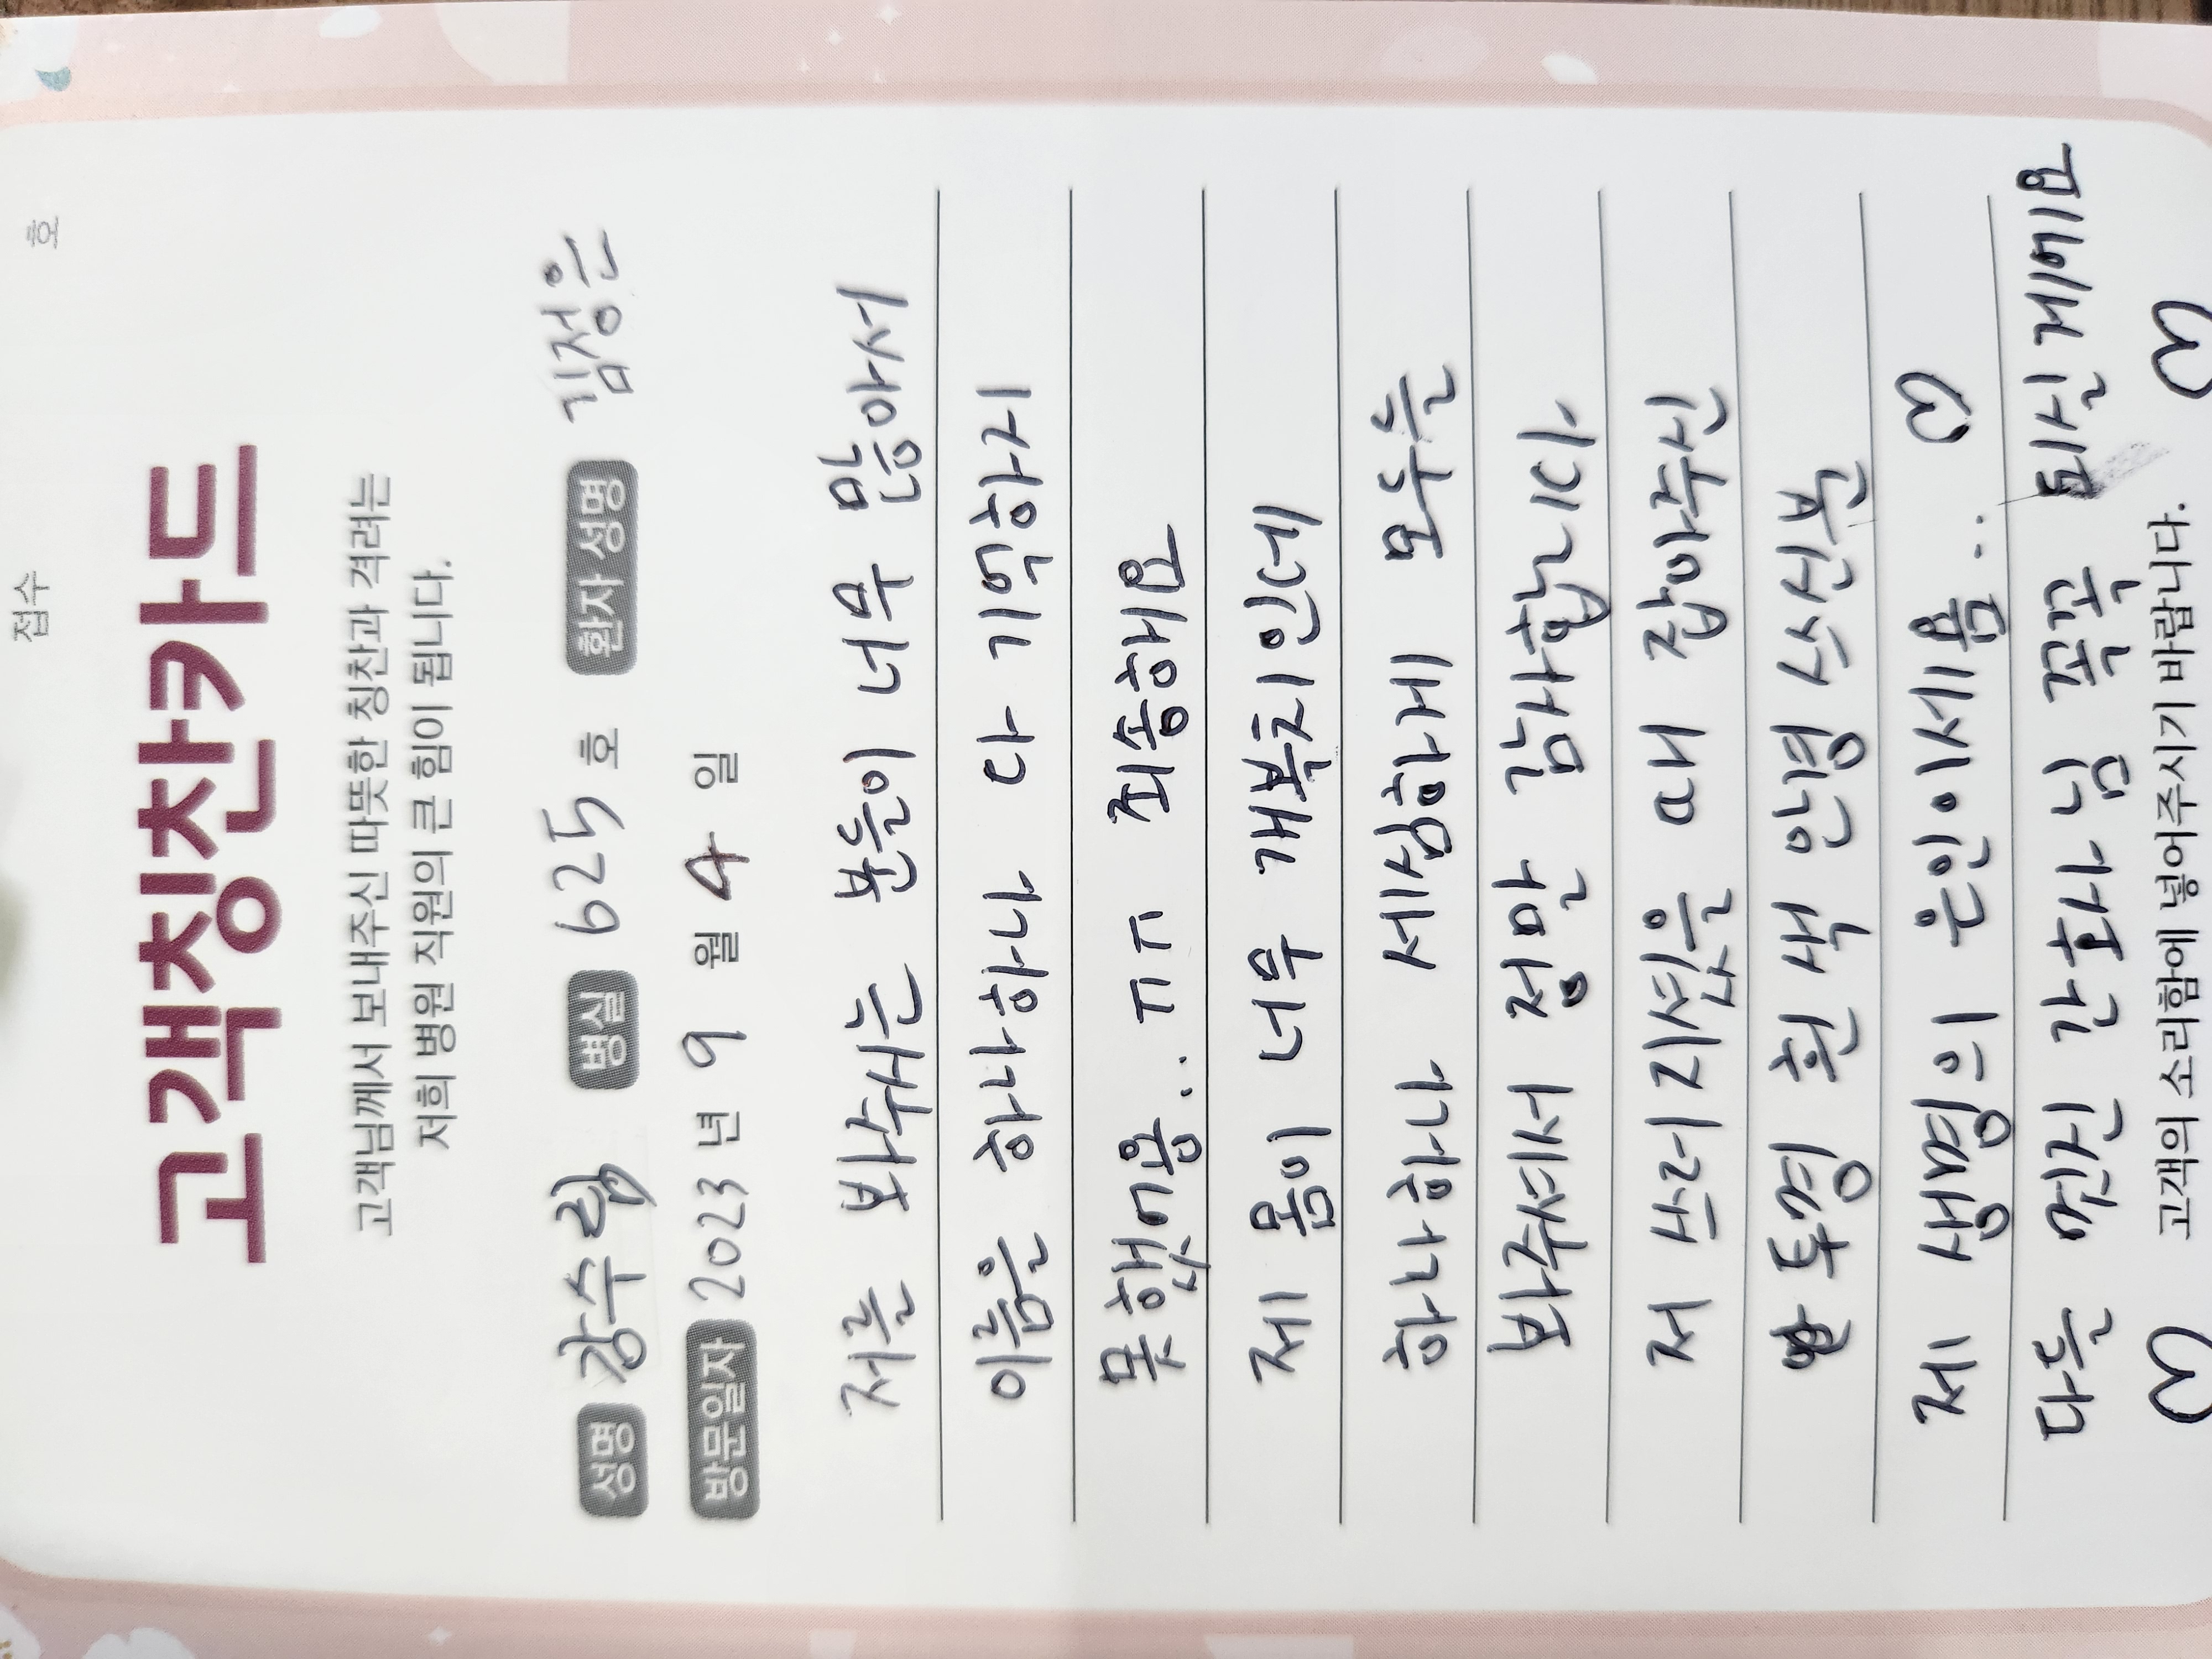 접수 호
고객칭찬카드
고객님께서 보내주신 따뜻한 칭찬과 격려는
저희 병원 직원의 큰 힘이 됩니다.
성명 강수림 병실 625 호 환자 성명 김정은
방문일자 2023 년 9 월 4 일
저를 봐주시는 분들이 너무 많아서
이름은 하나하나 다 기억하지
못했어용.. ㅠㅠ 죄송해요
제 몸이 너무 개복치인데
하나하나 세심하게 모두들
봐주셔서 정말 감사합니다
저 쓰러지셨을 때 잡아주신
두명 흰색 안경 쓰신분
제 생명의 은인이세욤.. ♡
다른 멋진 간호사님 꼭꼭 되시길 바래요
고객의 소리함에 넣어주시기 바랍니다.